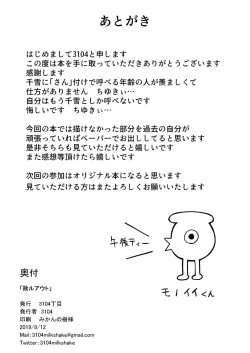 あとがき
はじめまして3104と申します
この度は本を手に取っていただきありがとうございます
感謝します
千雪に「さん」付けで呼べる年齢の人が羨ましくて
仕方がありません ちゆきぃ…
自分はもう千雪としか呼べないです
悔しいです ちゆきぃ…
今回の本では描けなかった部分を過去の自分が
頑張っていればペーパーでお出ししてると思います
是非そちらも見ていただけると嬉しいです
また感想等頂けたら嬉しいです
次回の参加はオリジナル本になると思います
見ていただける方はまたよろしくお願いいたします
午後ティー
モノイイくん
奥付
「散ルアウト」
発行 3104丁目
発行者 3104
印刷 みかんの樹様
2019/8/12
Mail:3104milkshake@gmail.com
Twitter:3104milkshake